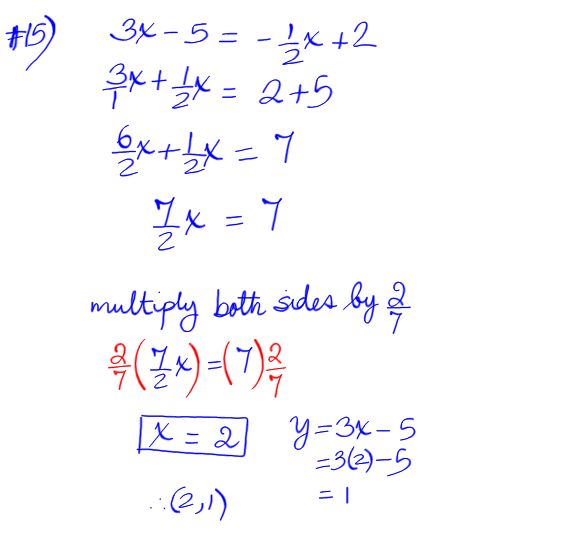 #15) 3x - 5 = -1/2x + 2
3/1x + 1/2x = 2 + 5
6/2x + 1/2x = 7
7/2x = 7
multiply both sides by 2/7
2/7(7/2x) = (7)2/7
x = 2
y = 3x - 5
= 3(2) - 5
= 1
∴(2,1)